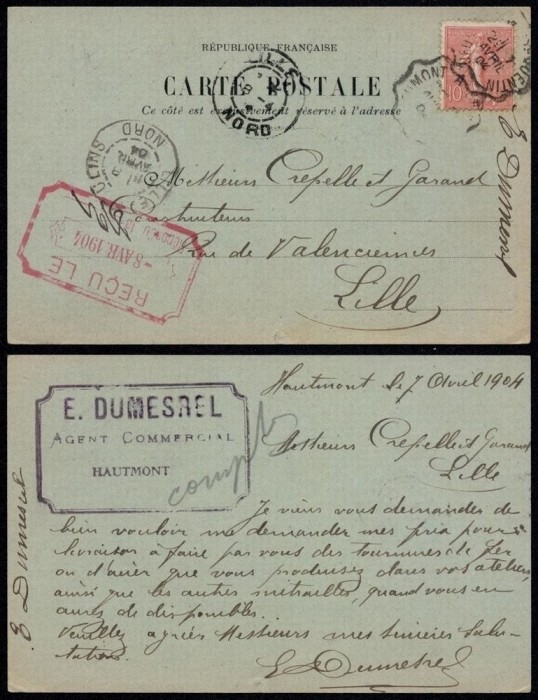 RÉPUBLIQUE FRANÇAISE
CARTE POSTALE
Ce côté est exclusivement réservé à l'adresse
LILLE
NORD
QUENTIN
AVRIL
10
E Dumesrel
LILLE
NORD
AVRIL
04
Messieurs Crepelle et Garand
Constructeurs
Rue de Valenciennes
Lille
REÇU LE
-8 AVR. 1904
E. DUMESREL
AGENT COMMERCIAL
HAUTMONT
compte
E Dumesrel
Hautmont le 7 Avril 1904
Messieurs Crepelle et Garand
Lille
Je viens vous demander de
bien vouloir me demander mes prix pour
livraison à faire par vous des tournures de fer
ou d'acier que vous produisez dans vos ateliers,
ainsi que les autres mitrailles, quand vous en
aurez de disponibles.
Veuillez agréer Messieurs mes sincères Salu-
tations.
E Dumesrel